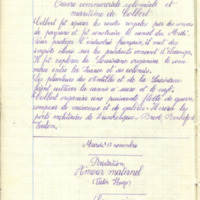 Œuvre commerciale, coloniale et
maritime de Colbert
Colbert fit ouvrir les routes royales par les corvées de
paysans et fit construire le canal du Midi.
Pour protéger l'industrie française, il met des
impôts élevés sur les produits étrangers. Il
fit explorer la Louisiane organisa le com
merce entre la France et ses colonies.
Les planteurs des Antilles et de la Louisiane
firent cultiver la canne à sucre et le café
Colbert organisa une puissante flotte de guerre
composée de vaisseaux et de galères. Il créa les
ports militaires de Dunkerque Brest Rochefort
Toulon.
Mardi 17 novembre
Récitation
Amour maternel
(Victor Hugo)